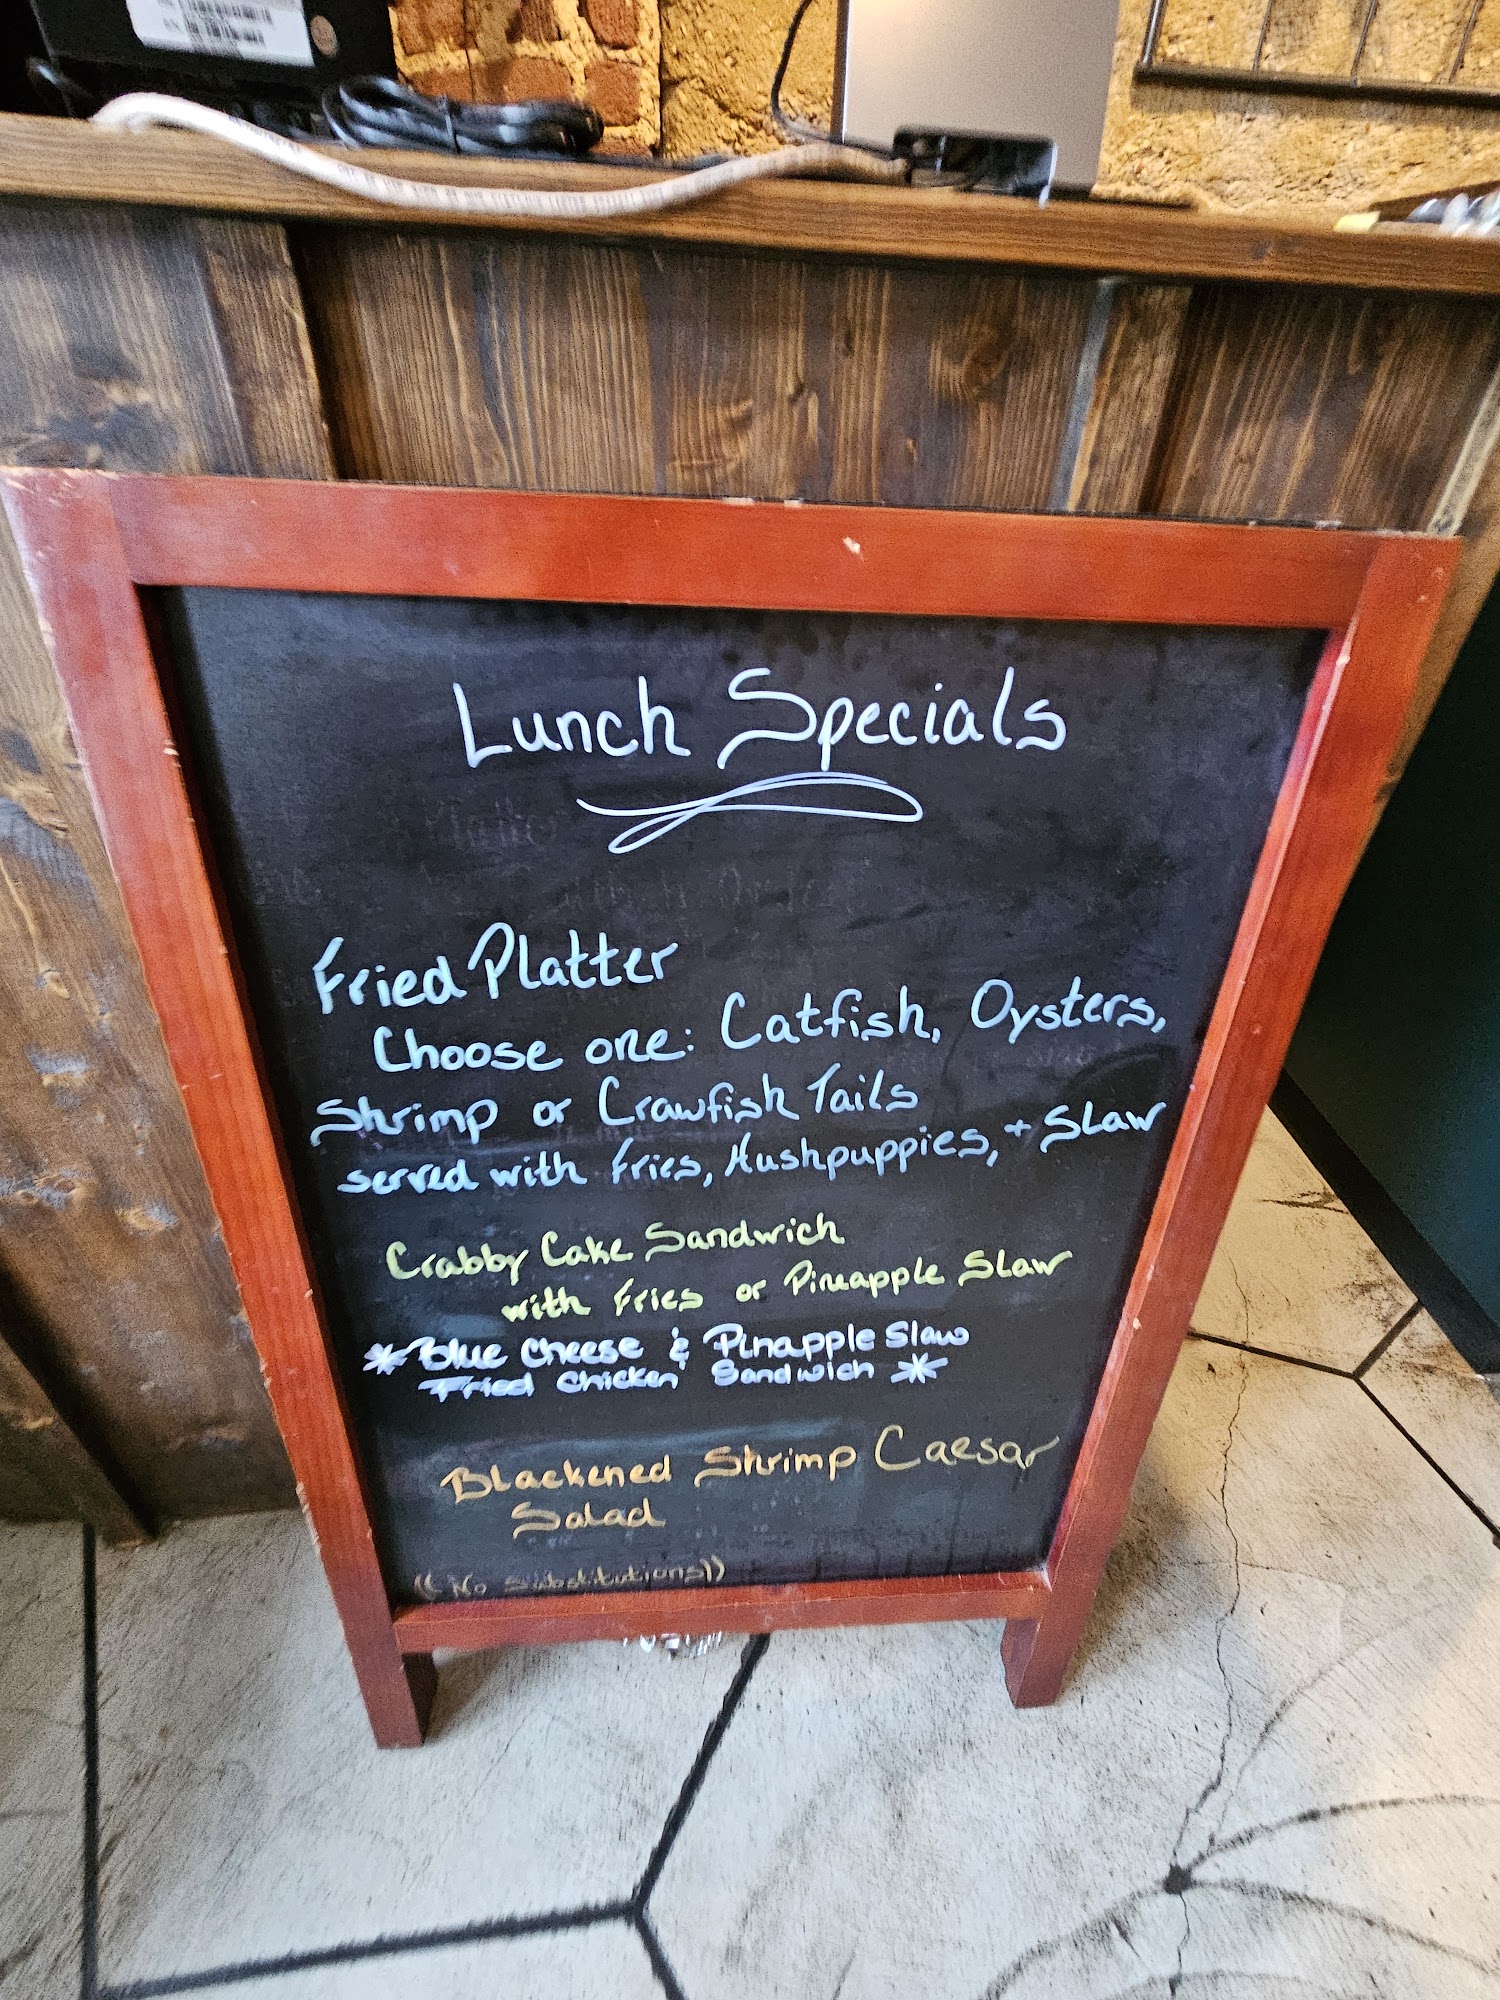 Lunch Specials
Fried Platter
Choose one: Catfish, Oysters,
Shrimp or Crawfish Tails
served with Fries, Hushpuppies, + Slaw
Crabby Cake Sandwich
with Fries or Pineapple Slaw
*Blue Cheese & Pinapple Slaw
Fried Chicken Sandwich *
Blackened Shrimp Caesar
Salad
((No Substitutions))